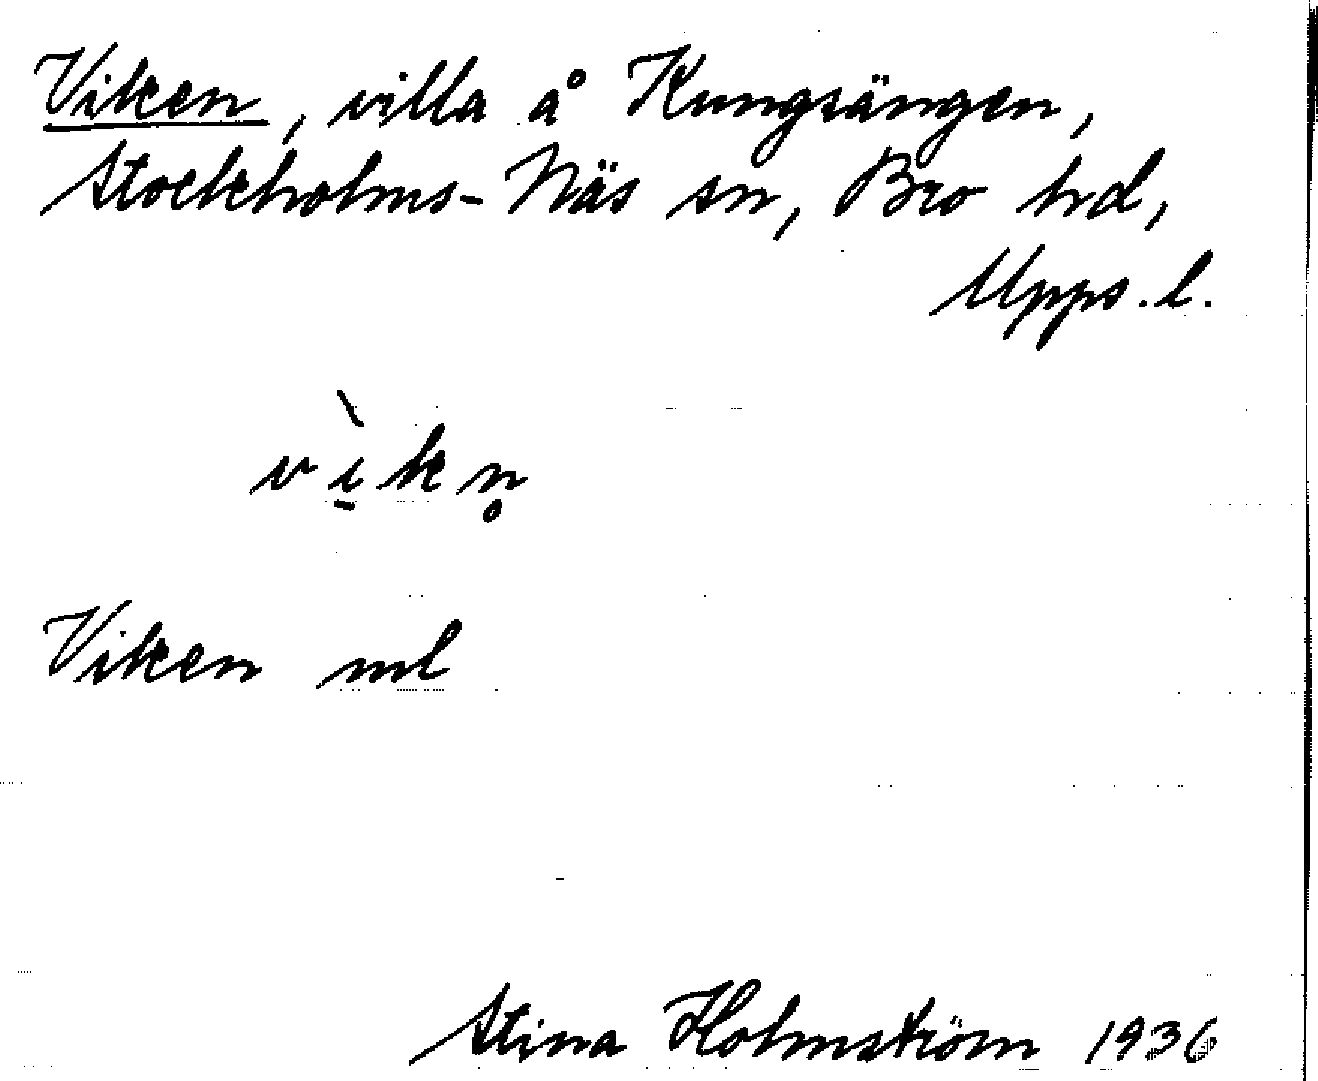 Viken, villa å Kungsängen,
Stockholms-Näs sn, Bro hd,
Upps. l.
vìkn̥
Viken ml
Stina Holmström 1936